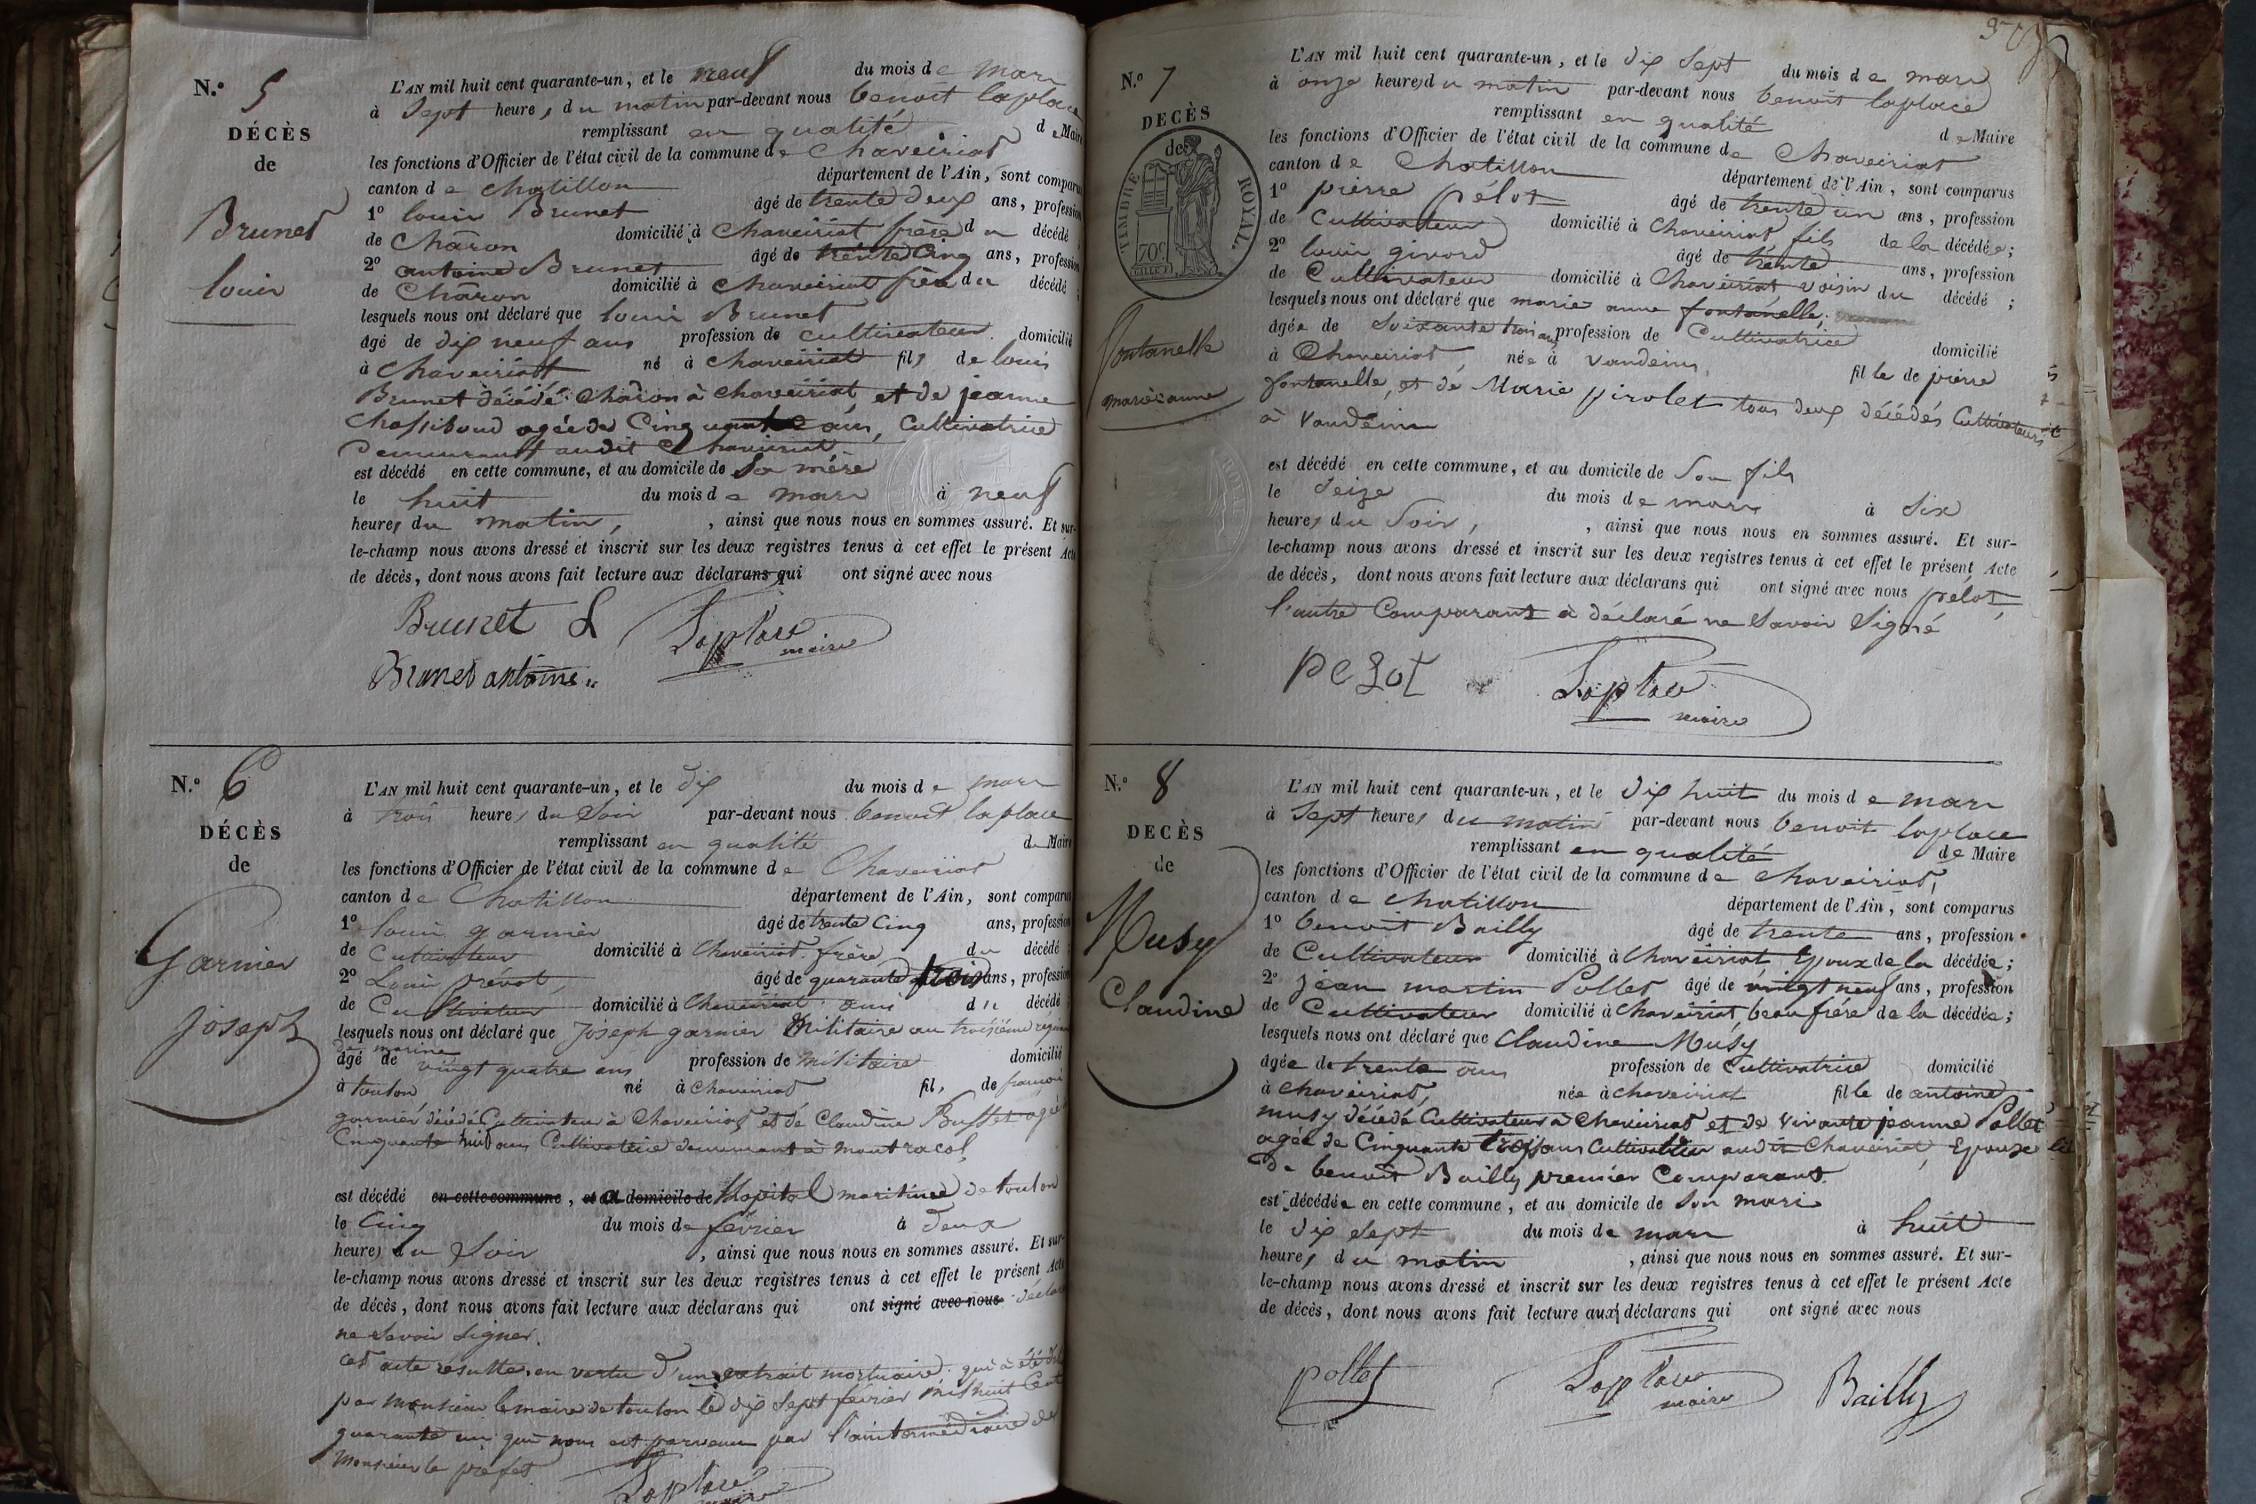 N.° 5
DÉCÈS
de
Brunet
louis
L'AN mil huit cent quarante-un, et le neuf du mois de mars
à sept heures du matin par-devant nous benoit laplace
remplissant en qualité de Maire
les fonctions d'Officier de l'état civil de la commune de Chaveiriat
canton de chatillon département de l'Ain, sont comparus
1° louis Brunet âgé de trente deux ans, profession
de Châron domicilié à Chaveiriat frère du décédé;
2° antoine Brunet âgé de trente cinq ans, profession
de Châron domicilié à chaveiriat frère du décédé;
lesquels nous ont déclaré que louis Brunet
âgé de dix neuf ans profession de cultivateur domicilié
à chaveiriat né à chaveiriat fils de louis
Brunet décédé Châron à chaveiriat, et de jeanne
Chassiboud agée de Cinquante ans, Cultivatrice
Demeurant audit Chaveiriat
est décédé en cette commune, et au domicile de Sa mère
le huit du mois de mars à neuf
heures du matin, , ainsi que nous nous en sommes assuré. Et sur-
le-champ nous avons dressé et inscrit sur les deux registres tenus à cet effet le présent Acte
de décès, dont nous avons fait lecture aux déclarans qui ont signé avec nous
Brunet L Laplace maire
Brunet antoine
N.° 6
DÉCÈS
de
Garnier
Joseph
L'AN mil huit cent quarante-un, et le dix du mois de mars
à trois heures du Soir par-devant nous benoit laplace
remplissant en qualité de Maire
les fonctions d'Officier de l'état civil de la commune de Chaveiriat
canton de Chatillon département de l'Ain, sont comparus
1° louis garnier âgé de trente Cinq ans, profession
de Cultivateur domicilié à Chaveiriat frère du décédé;
2° Louis prévot, âgé de quarante trois ans, profession
de Cultivateur domicilié à Chaveiriat ami du décédé;
lesquels nous ont déclaré que Joseph garnier Militaire au troisième
de marine
âgé de vingt quatre ans profession de militaire domicilié
à toulon né à chaveiriat fils de françois
garnier décédé Cultivateur à Chaveiriat et de Claudine Buffet agée
Cinquante huit ans Cultivatrice demeurant à montracol,
est décédé en cette commune, et au domicile de hopital maritime de toulon
le Cinq du mois de février à deux
heures du Soir , ainsi que nous nous en sommes assuré. Et sur-
le-champ nous avons dressé et inscrit sur les deux registres tenus à cet effet le présent Acte
de décès, dont nous avons fait lecture aux déclarans qui ont signé avec nous
ne Savoir signer.
cet acte résulte en vertu d'un extrait mortuaire, qui a été
par monsieur le maire de toulon le dix Sept février mil huit Cent
quarante un qui nous est parvenu par l'intermédiaire de
Monsieur le préfet
Laplace
maire
N.° 7
DECÈS
de
TIMBRE ROYAL.
70c.
fontanelle
marie anne
L'AN mil huit cent quarante-un, et le dix sept du mois de mars
à onze heures du matin par-devant nous benoit laplace
remplissant en qualité de Maire
les fonctions d'Officier de l'état civil de la commune de Chaveiriat
canton de Chatillon département de l'Ain, sont comparus
1° pierre pélot âgé de trente un ans, profession
de Cultivateur domicilié à Chaveiriat fils de la décédée;
2° louis givord âgé de trente ans, profession
de Cultivateur domicilié à Chaveiriat voisin du décédé;
lesquels nous ont déclaré que marie anne fontanelle,
âgée de Soixante trois ans profession de Cultivatrice domicilié
à Chaveiriat née à vandeins, fille de pierre
fontanelle, et de Marie pirolet tous deux décédés Cultivateurs
à Vandeins
est décédé en cette commune, et au domicile de Son fils
le Seize du mois de mars à Six
heures du Soir, , ainsi que nous nous en sommes assuré. Et sur-
le-champ nous avons dressé et inscrit sur les deux registres tenus à cet effet le présent Acte
de décès, dont nous avons fait lecture aux déclarans qui ont signé avec nous pélot,
l'autre Comparant à déclaré ne Savoir Signé
peLot Laplace maire
N.° 8
DECÈS
de
Musy
Claudine
L'AN mil huit cent quarante-un, et le dix huit du mois de mars
à Sept heures du matin par-devant nous benoit laplace
remplissant en qualité de Maire
les fonctions d'Officier de l'état civil de la commune de chaveiriat,
canton de chatillon département de l'Ain, sont comparus
1° benoit Bailly âgé de trente ans, profession
de Cultivateur domicilié à Chaveiriat, Epoux de la décédée;
2° jean martin Pollet âgé de vingt neuf ans, profession
de Cultivateur domicilié à Chaveiriat, beau frère de la décédée;
lesquels nous ont déclaré que Claudine Musy
âgée de trente ans profession de Cultivatrice domicilié
à chaveiriat, née à chaveiriat fille de antoine
musy décédé Cultivateur à Chaveiriat et de Vivante jeanne Pollet
agée de Cinquante trois ans Cultivatrice audit Chaveiriat, Epouse
De benoit Bailly premier Comparant.
est décédée en cette commune, et au domicile de Son mari
le dix sept du mois de mars à huit
heures du matin , ainsi que nous nous en sommes assuré. Et sur-
le-champ nous avons dressé et inscrit sur les deux registres tenus à cet effet le présent Acte
de décès, dont nous avons fait lecture aux déclarans qui ont signé avec nous
pollet Laplace maire Bailly